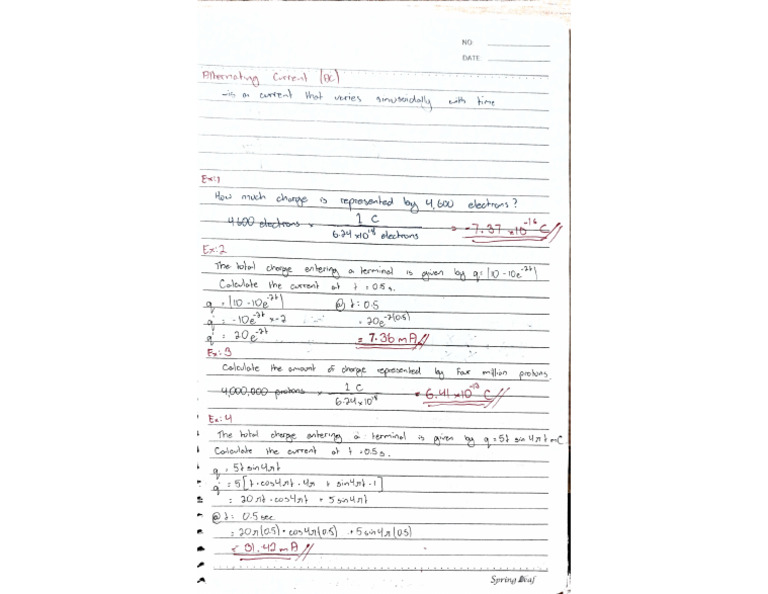 NO:
DATE:
Alternating Current (AC)
- is a current that varies sinusoidally with time
Ex:1
How much charge is represented by 4,600 electrons?
4,600 electrons × 1 C / 6.24×10¹⁸ electrons = -7.37 ×10⁻¹⁶ C//
Ex:2
The total charge entering a terminal is given by q=(10-10e⁻²ᵗ)
Calculate the current at t = 0.5s.
q = (10-10e⁻²ᵗ) @ t=0.5
q = -10e⁻²ᵗ x-2 = 20e⁻²⁽⁰·⁵⁾
q = 20e⁻²ᵗ = 7.36 mA//
Ex: 3
Calculate the amount of charge represented by four million protons
4,000,000 protons × 1 C / 6.24×10¹⁸ = 6.41 ×10⁻¹³ C//
Ex:4
The total charge entering a terminal is given by q=5t sin 4πt mC
Calculate the current at t=0.5s.
q = 5t sin4πt
q = 5[t·cos4πt·4π + sin4πt·1]
= 20πt·cos4πt + 5sin4πt
@ t= 0.5sec
= 20π(0.5)·cos4π(0.5) +5sin4π(0.5)
= 31.42 mA//
Spring Leaf